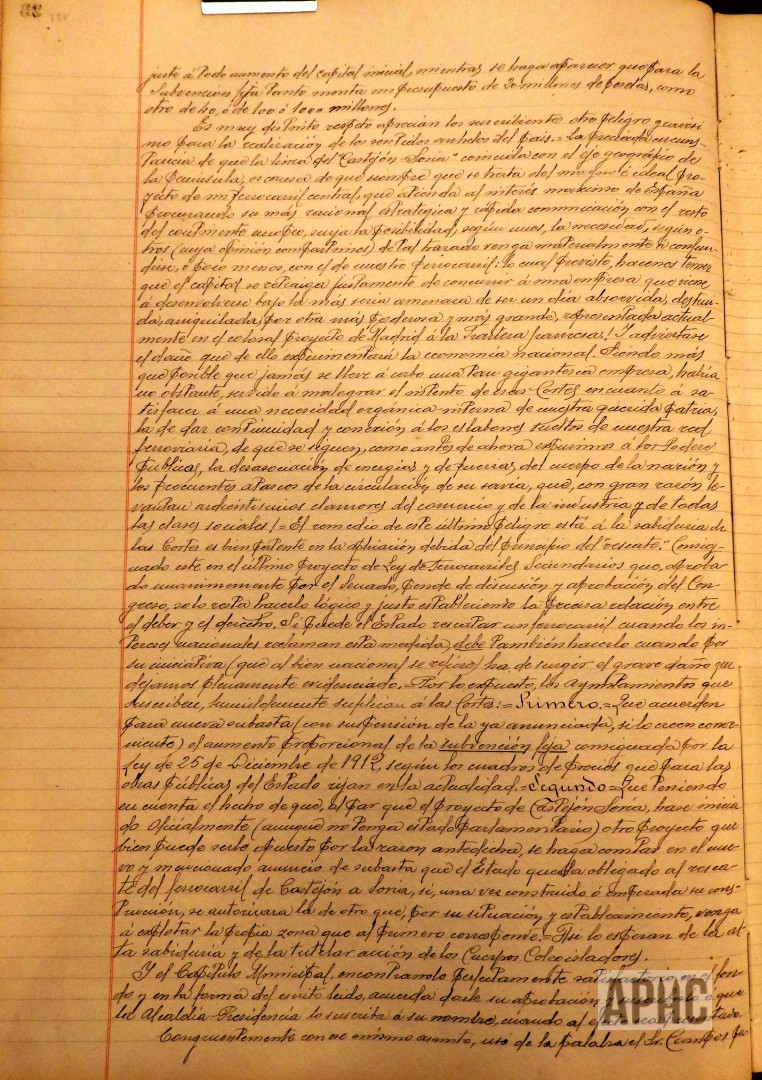 juste á todo aumento del capital inicial, mientras se haga aparecer que para la
subvención fija tanto monta un presupuesto de 30 millones de pesetas, como
otro de 40, ó de 100 ó 1000 millones.
Es muy distinto respeto aprecian los suscribientes otro peligro gravisi-
mo para la realización de los sentidos anhelos del pais.= La preciada circuns-
tancia de que la línea del "Castejón-Soria" coincida con el eje geográfico de
la Península, es causa de que siempre que se trata del é ideal pro-
yecto de un ferrocarril central, que atienda al interés maximo de España
procurando su más racional estratégica y rápida comunicación con el resto
del continente europeo, surja la posibilidad, según unos, la necesidad, según o-
tros (cuya opinión compartimos) de tal trazado venga materialmente á confun-
dirse, ó poco menos, con el de nuestro ferrocarril: lo cual previsto, hacenos temer
que el capital se retraiga justamente de concurrir á una empresa que viene
á desenvolverse bajo la más seria amenaza de ser un dia absorvida, destrui-
da, aniquilada, por otra más poderosa y más grande, representada actual-
mente en el colosal proyecto de Madrid á la frontera francesa! Y adviertase
el daño que de ello experimentaria la economia nacional. Siendo más
que posible que jamás se lleve á cabo una tan gigantesca empresa, habria
no obstante, servido á malograr el intento de esas Cortes en cuanto á sa-
tisfacer á una necesidad orgánica interna de nuestra querida patria,
la de dar continuidad y conexión á los eslabones sueltos de nuestra red
ferroviaria, de que se siguen, como antes de ahora expusimos á los Poderes
Públicos, la desasociación de energias y de fuerzas, del cuerpo de la nación y
los frecuentes atascos de la circulación de su savia, que, con gran razón le-
vantan ardentisimos clamores del comercio y de la industria y de todas
las clases sociales!= El remedio de este último peligro está á la sabiduria de
las Cortes es bien patente en la aplicación debida del principio del "rescate." Consig-
nado este en el último proyecto de Ley de Ferrocarriles Secundarios que, aproba-
do unanimemente por el Senado, pende de discusión y aprobación del Con-
greso, solo resta hacerlo lógico y justo estableciendo la precisa relación entre
el deber y el derecho. Si puede el Estado rescatar un ferrocarril cuando los in-
tereses nacionales reclaman esta medida, debe también hacerlo cuando por
su iniciativa (que al bien nacional se refiere) ha de surgir el grave daño que
dejamos plenamente evidenciado.= Por lo expuesto, los Ayuntamientos que
suscriben, humildemente suplican á las Cortes:= Primero.= Que acuerden
para nueva subasta (con suspensión de la ya anunciada, si lo creen conve-
niente) el aumento proporcional de la subvención fija consignada por la
Ley de 25 de Diciembre de 1912, según los cuadros de precios que para las
obras públicas del Estado rijan en la actualidad.= Segundo= Que teniendo
en cuenta el hecho de que, al par que el proyecto de Castejón Soria, hase inicia-
do oficialmente (aunque no tenga estado parlamentario) otro proyecto que
bien puede serle opuesto por la razon antedicha, se haga constar en el nue-
vo y mencionado anuncio de subasta que el Estado queda obligado al resca-
te del ferrocarril de Castejón a Soria, si, una vez construido ó empezada su cons-
trucción, se autorizara la de otro que, por su situación y establecimiento, venga
á explotar la propia zona que al primero corresponde.= Asi lo esperan de la al-
ta sabiduria y de la tutelar acción de los Cuerpos Colegisladores.
Y el Capítulo Municipal, encontrandolo perfectamente en el fon-
do y en la forma del escrito leido, acuerda darle su aprobación que
la Alcaldía-Presidencia lo suscriba á su nombre, cuando al
Congruentemente con ese mismo asunto, usó de la palabra el Sr. Campos
APHC